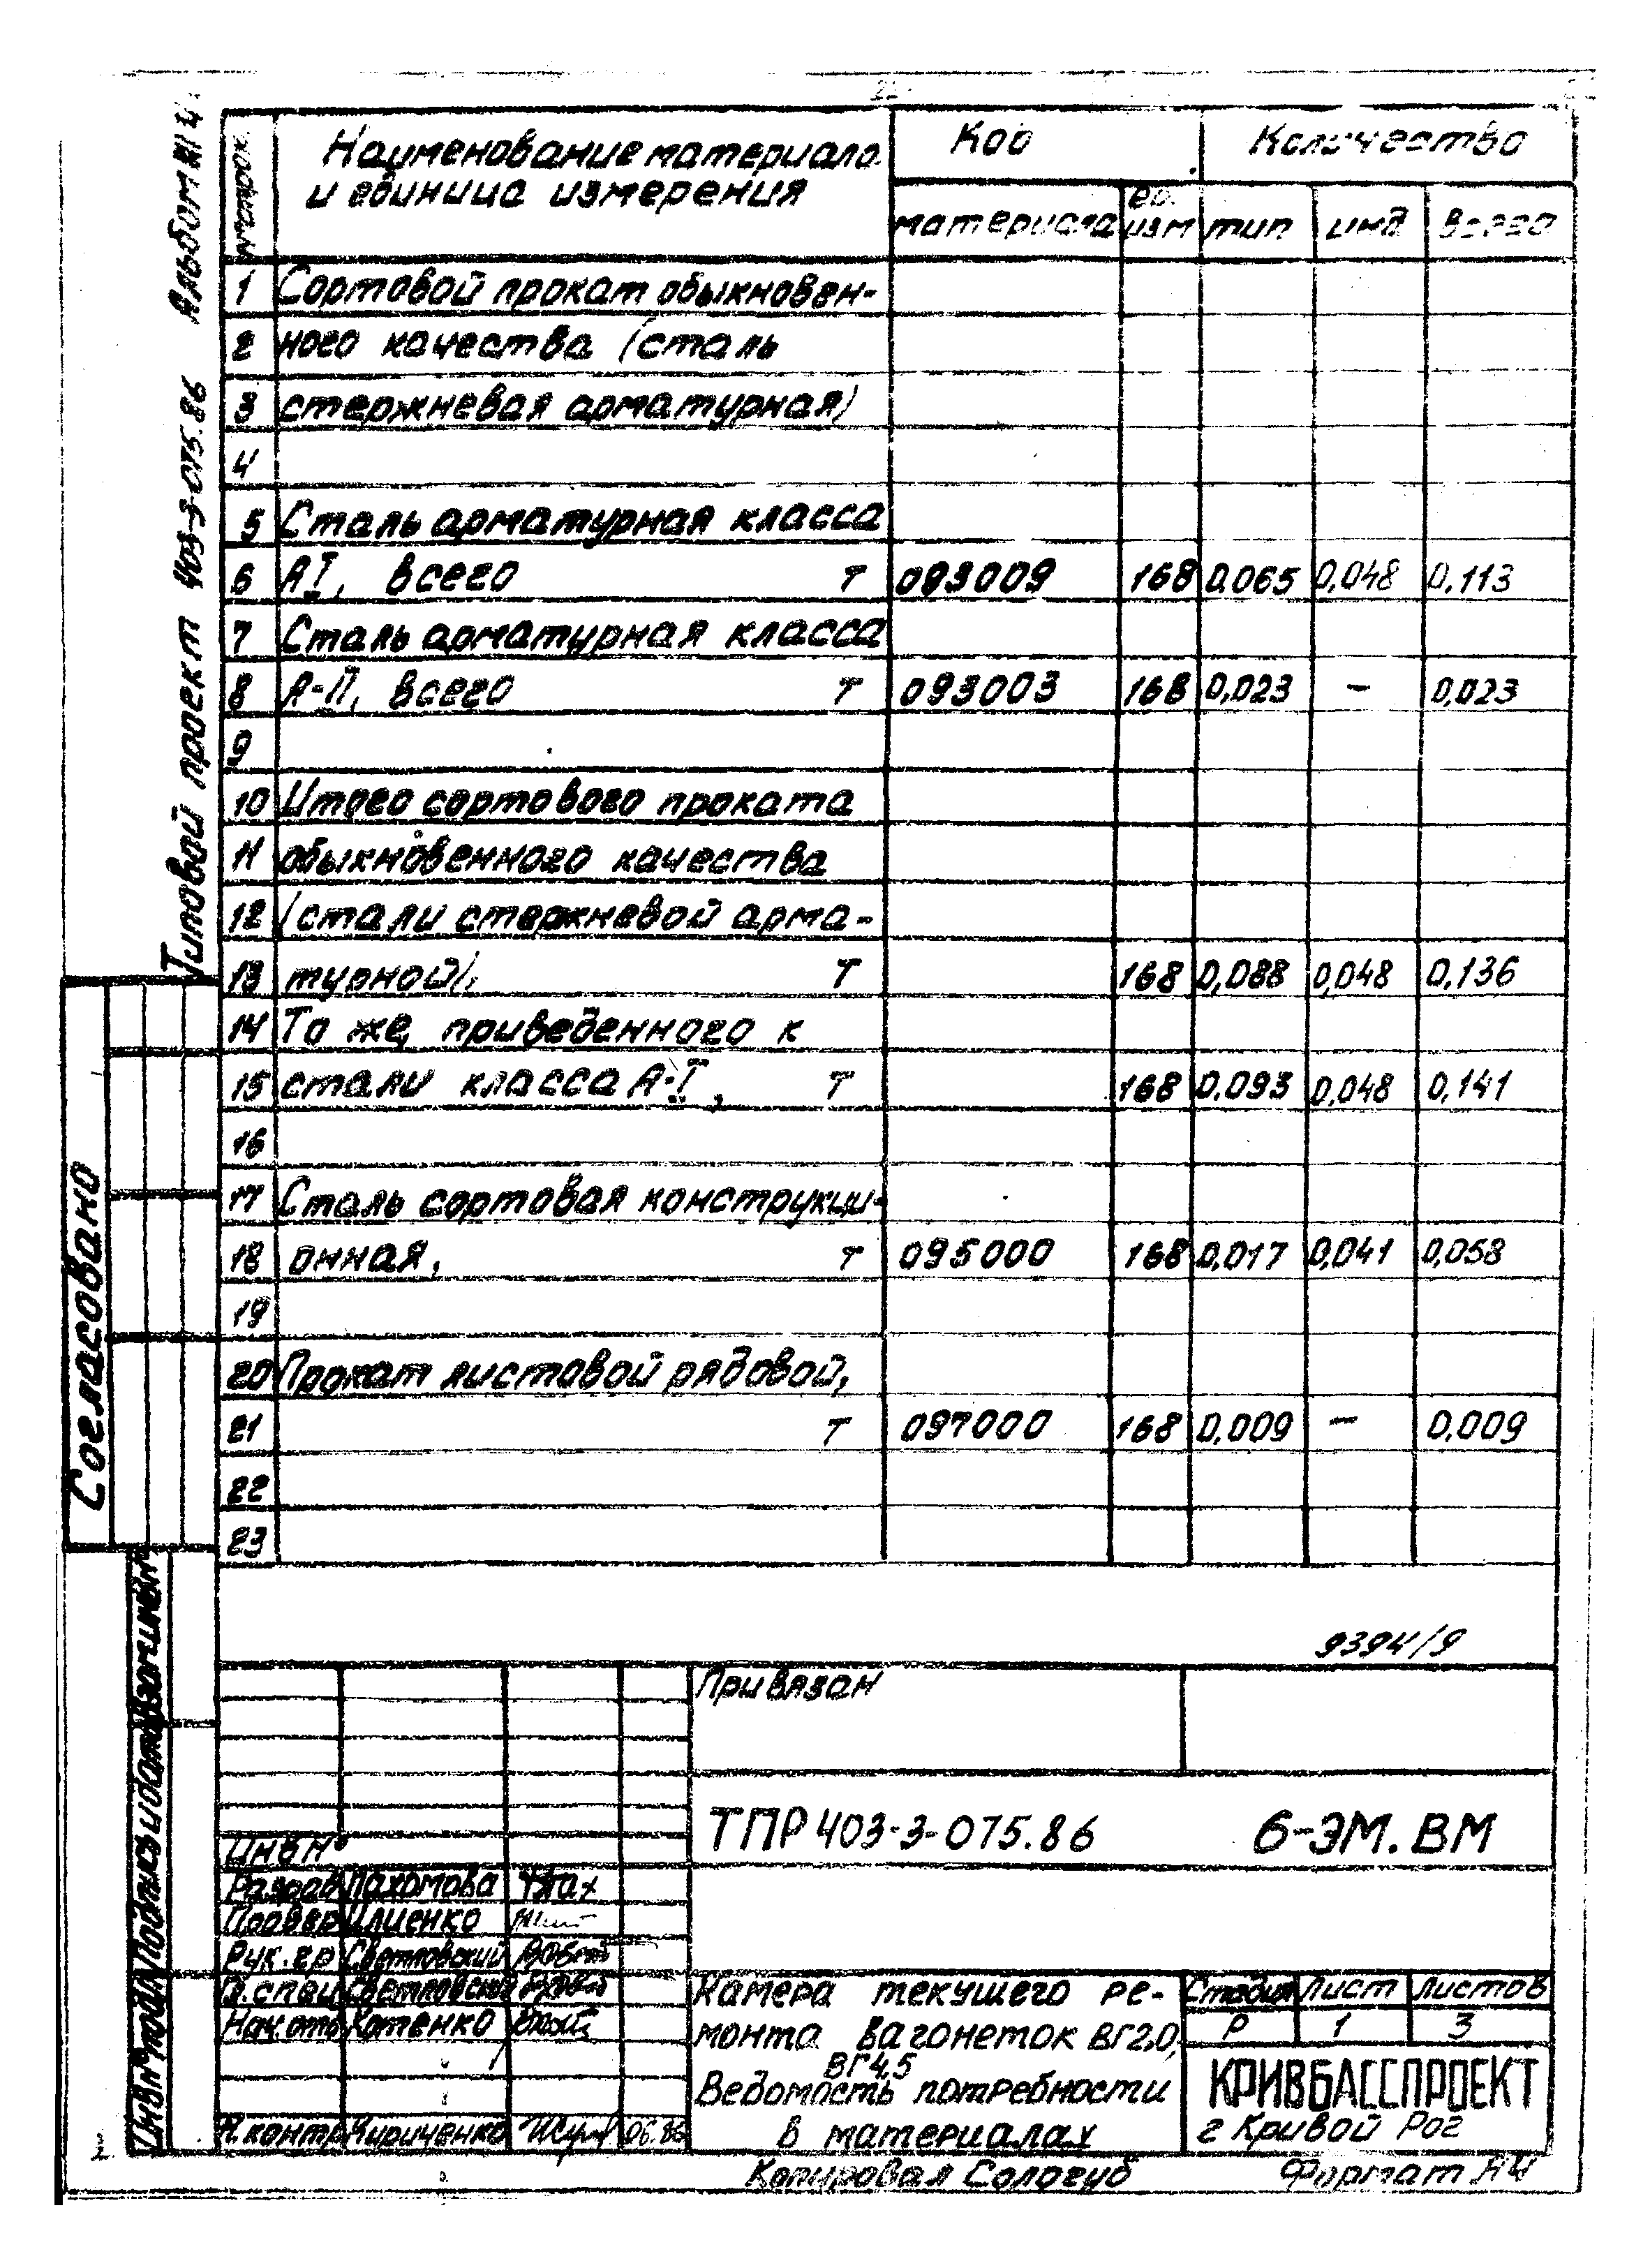 Типовой проект 403-3-075.86 Альбом
Наименование материала
и единица измерения
Код
Количество
материала
ед.
изм
тип
инд
Всего
1 Сортовой прокат обыкновен-
2 ного качества (сталь
3 стержневая арматурная)
4
5 Сталь арматурная класса
6 АI, всего т 093009 168 0,065 0,048 0,113
7 Сталь арматурная класса
8 А-II, всего т 093003 168 0,023 — 0,023
9
10 Итого сортового проката
11 обыкновенного качества
12 (стали стержневой арма-
13 турной), т 168 0,088 0,048 0,136
14 То же, приведенного к
15 стали класса А-I, т 168 0,093 0,048 0,141
16
17 Сталь сортовая конструкци-
18 онная, т 095000 168 0,017 0,041 0,058
19
20 Прокат листовой рядовой,
21 т 097000 168 0,009 — 0,009
22
23
Согласовано
Взам инв №
Подпись и дата
Инв № подл
9394/9
Привязан
Инв №
ТПР 403-3-075.86 6-ЭМ.ВМ
Разраб Пахомова
Провер Илиенко
Рук.гр Светловский
Гл.спец Светловский
Нач.отд Котенко
Н.контр Кириченко 06.86
Камера текущего ре-
монта вагонеток ВГ2,0,
ВГ4,5
Ведомость потребности
в материалах
Стадия Лист Листов
Р 1 3
КРИВБАССПРОЕКТ
г Кривой Рог
Копировал Сологуб Формат А4